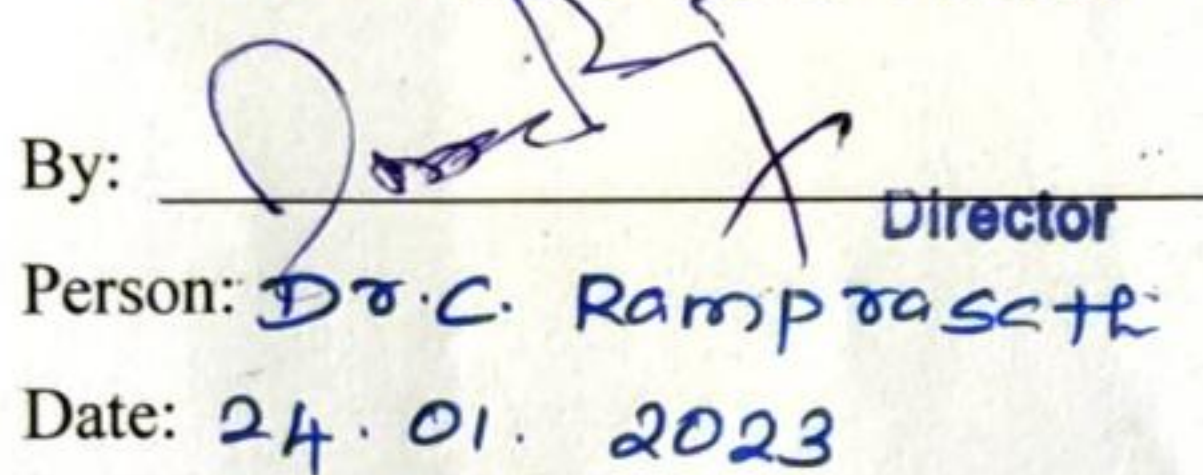 By:
Director
Person: Dr. C. Ramprasath
Date: 24.01.2023